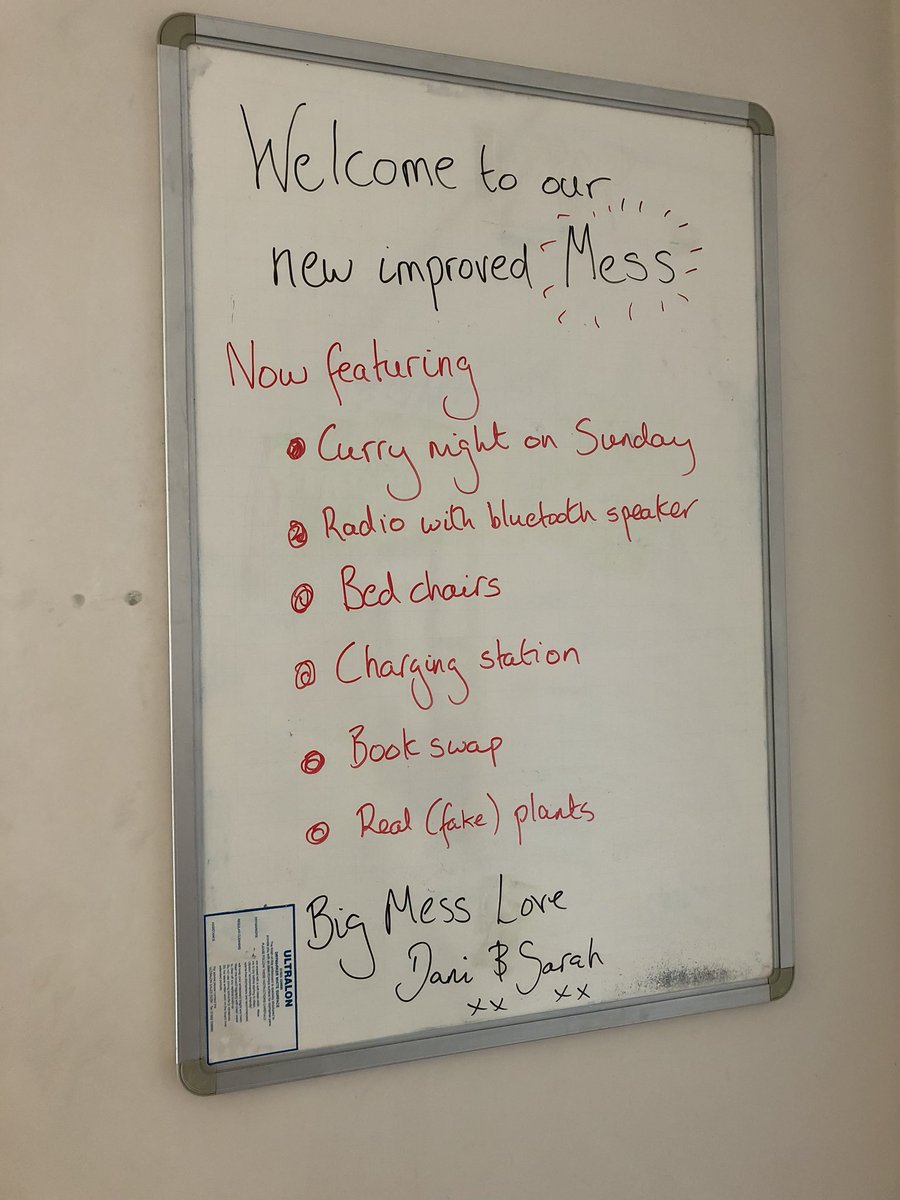 Welcome to our
new improved Mess
Now featuring
Curry night on Sunday
Radio with bluetooth speaker
Bed chairs
Charging station
Book swap
Real (fake) plants
Big Mess Love
Dani & Sarah
xx xx
ULTRALON